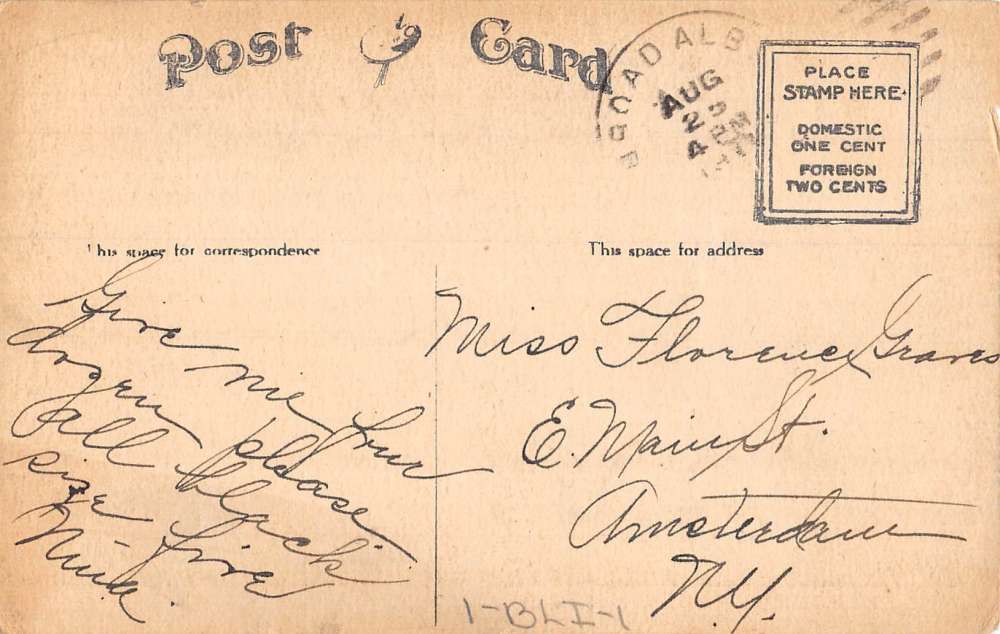 Post Card
BROADALB
AUG
4 PM
PLACE
STAMP HERE
DOMESTIC
ONE CENT
FOREIGN
TWO CENTS
This space for correspondence
This space for address
Give me four
dozen please
all black
size five
Nina.
Miss Florence Graves
E. Main St.
Amsterdam
N.Y.
1-BLI-1